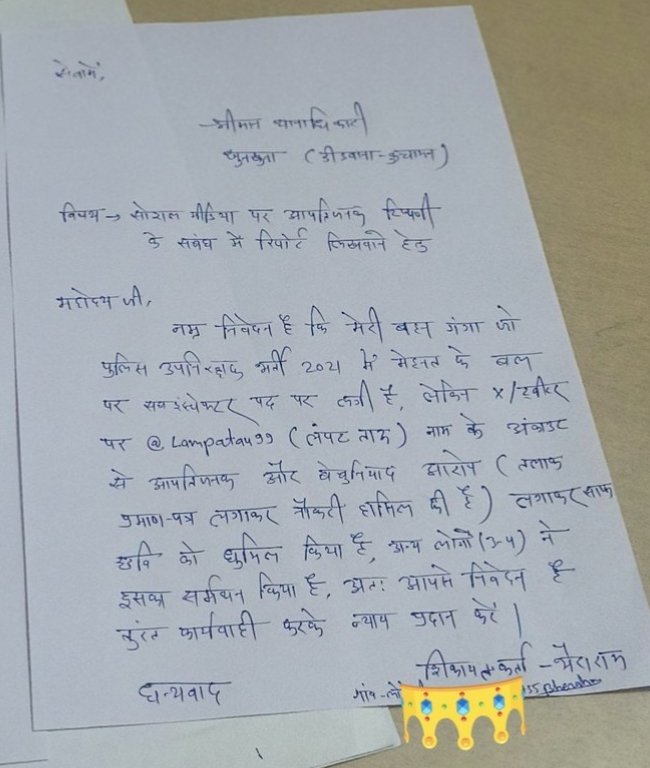 सेवामें,
श्रीमान थानाधिकारी
खुनखुना (डीडवाना-कुचामन)
विषय → सोशल मीडिया पर आपत्तिजनक टिप्पणी
के संबंध में रिपोर्ट लिखवाने हेतु
महोदय जी,
नम्र निवेदन है कि मेरी बहन गंगा जो
पुलिस उपनिरीक्षक भर्ती 2021 में मेहनत के बल
पर सबइंस्पेक्टर पद पर लगी है, लेकिन X/ट्वीटर
पर @Lampatau99 (लंपट ताऊ) नाम के अंकाउट
से आपत्तिजनक और बेबुनियाद आरोप (तलाक
प्रमाण-पत्र लगाकर नौकरी हासिल की है) लगाकर साफ
छवि को धुमिल किया है, अन्य लोगों (3-4) ने
इसका सर्मथन किया है, अतः आपसे निवेदन है
तुरंत कार्यवाही करके न्याय प्रदान करें।
शिकायतकर्ता -
धन्यवाद
गांव-